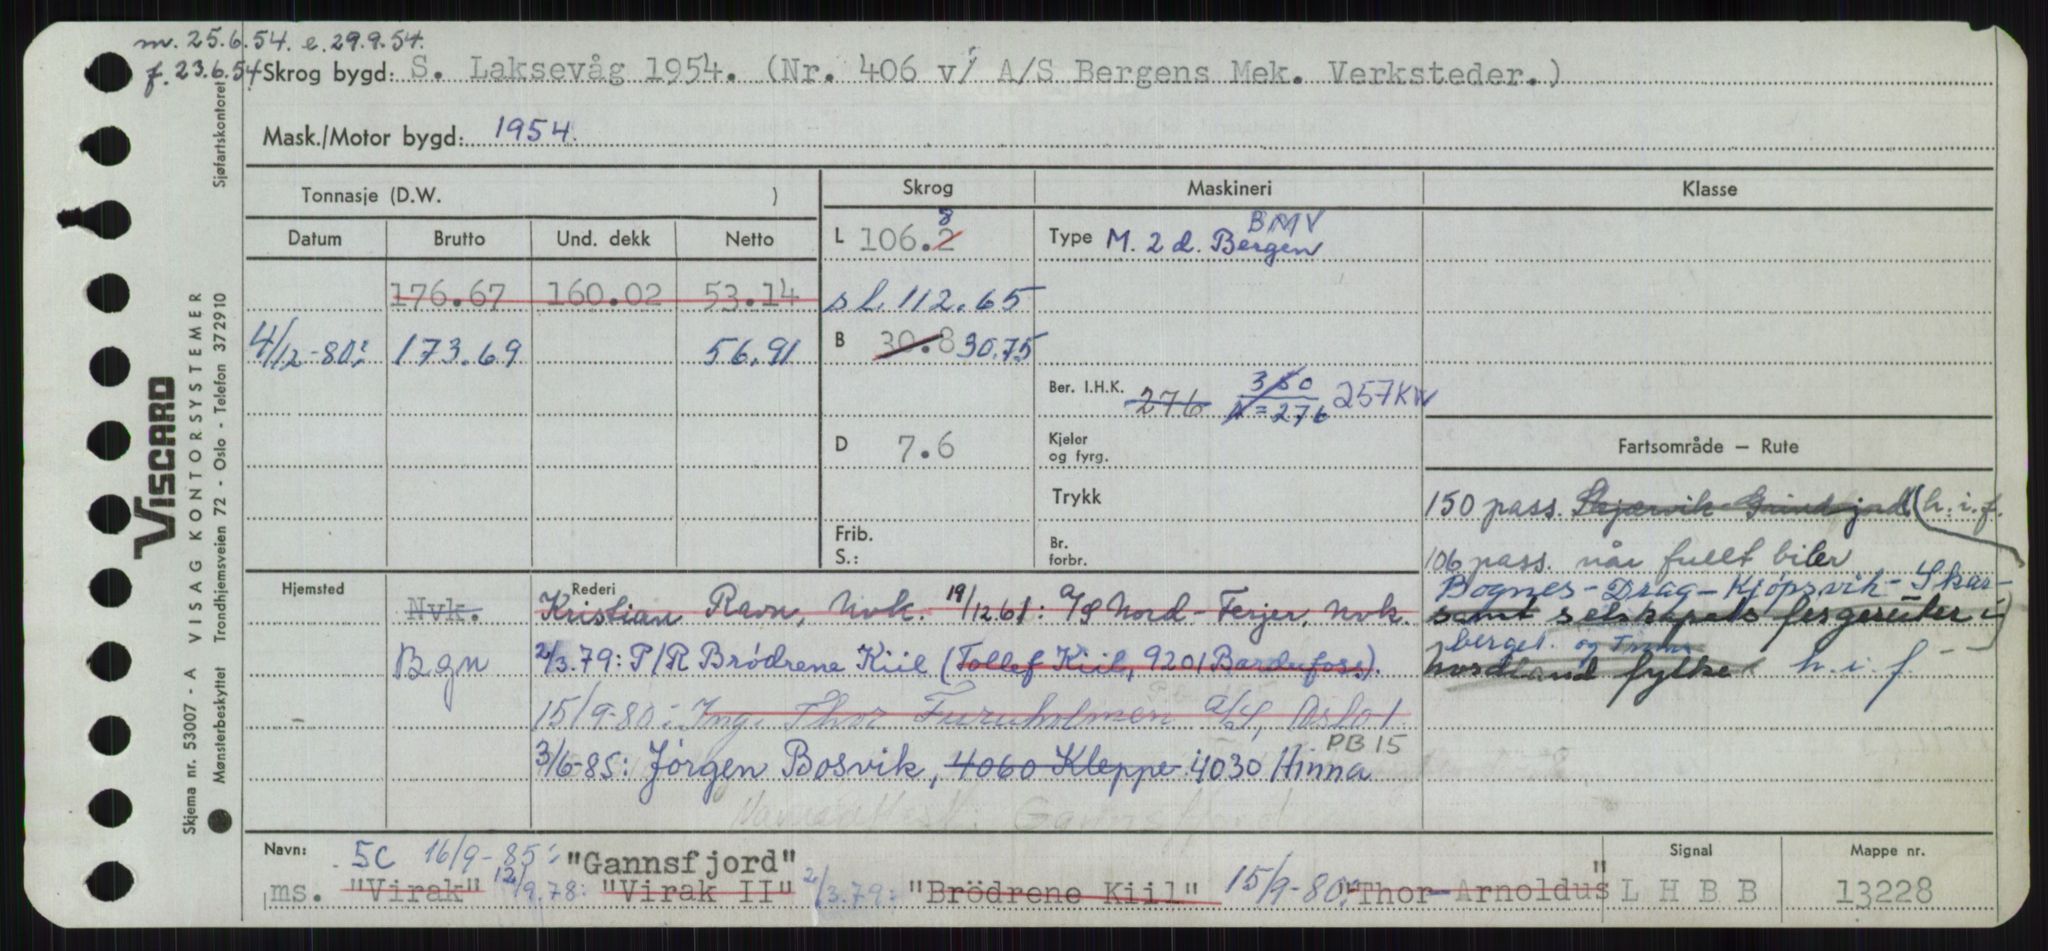 m. 25.6.54. e. 29.9.54.
f. 23.6.54 Skrog bygd: S. Laksevåg 1954. (Nr. 406 v/ A/S Bergens Mek. Verksteder.)
Mask./Motor bygd: 1954.
Tonnasje (D.W. )
Skrog Maskineri Klasse
Datum Brutto Und. dekk Netto
L 106.2 8
Type M. 2 d. Bergen BMV
176.67 160.02 53.14
sl. 112.65
4/12-80: 173.69 56.91
B 30.8 30.75
Ber. I.H.K. 276 350 N=276 257KW
D 7.6
Kjeler og fyrg.
Trykk
Frib.
S.:
Br. forbr.
Fartsområde — Rute
150 pass. Skjærvik-Grindjord (h.i.f.
106 pass. når fullt biler
Bognes-Drag-Kjøpsvik-Skar-
samt selskapets fergeruter i
berget. og
Nordland fylke h.i.f.
Hjemsted Rederi
Nvk. Kristian Ravn, Nvk. 19/12.61: A/S Nord-Ferjer, Nvk.
Bgn 2/3.79: P/R Brödrene Kiil (Tollef Kiil, 9201 Bardufoss).
15/9-80: Ing. Thor Furuholmen A/S, Oslo 1.
PB 15
3/6-85: Jörgen Bosvik, 4060 Kleppe 4030 Hinna
Gannsfjord
Navn: 5C 16/9-85: "Gannsfjord"
Signal Mappe nr.
ms. "Virak" 12/9.78: "Virak II" 2/3.79: "Brödrene Kiil" 15/9-80: "Thor Arnoldus" L H B B 13228
VISCARD
VISAG KONTORSYSTEMER
Skjema nr. 53007 - A
Mønsterbeskyttet Trondhjemsveien 72 - Oslo - Telefon 372910
Sjøfartskontoret